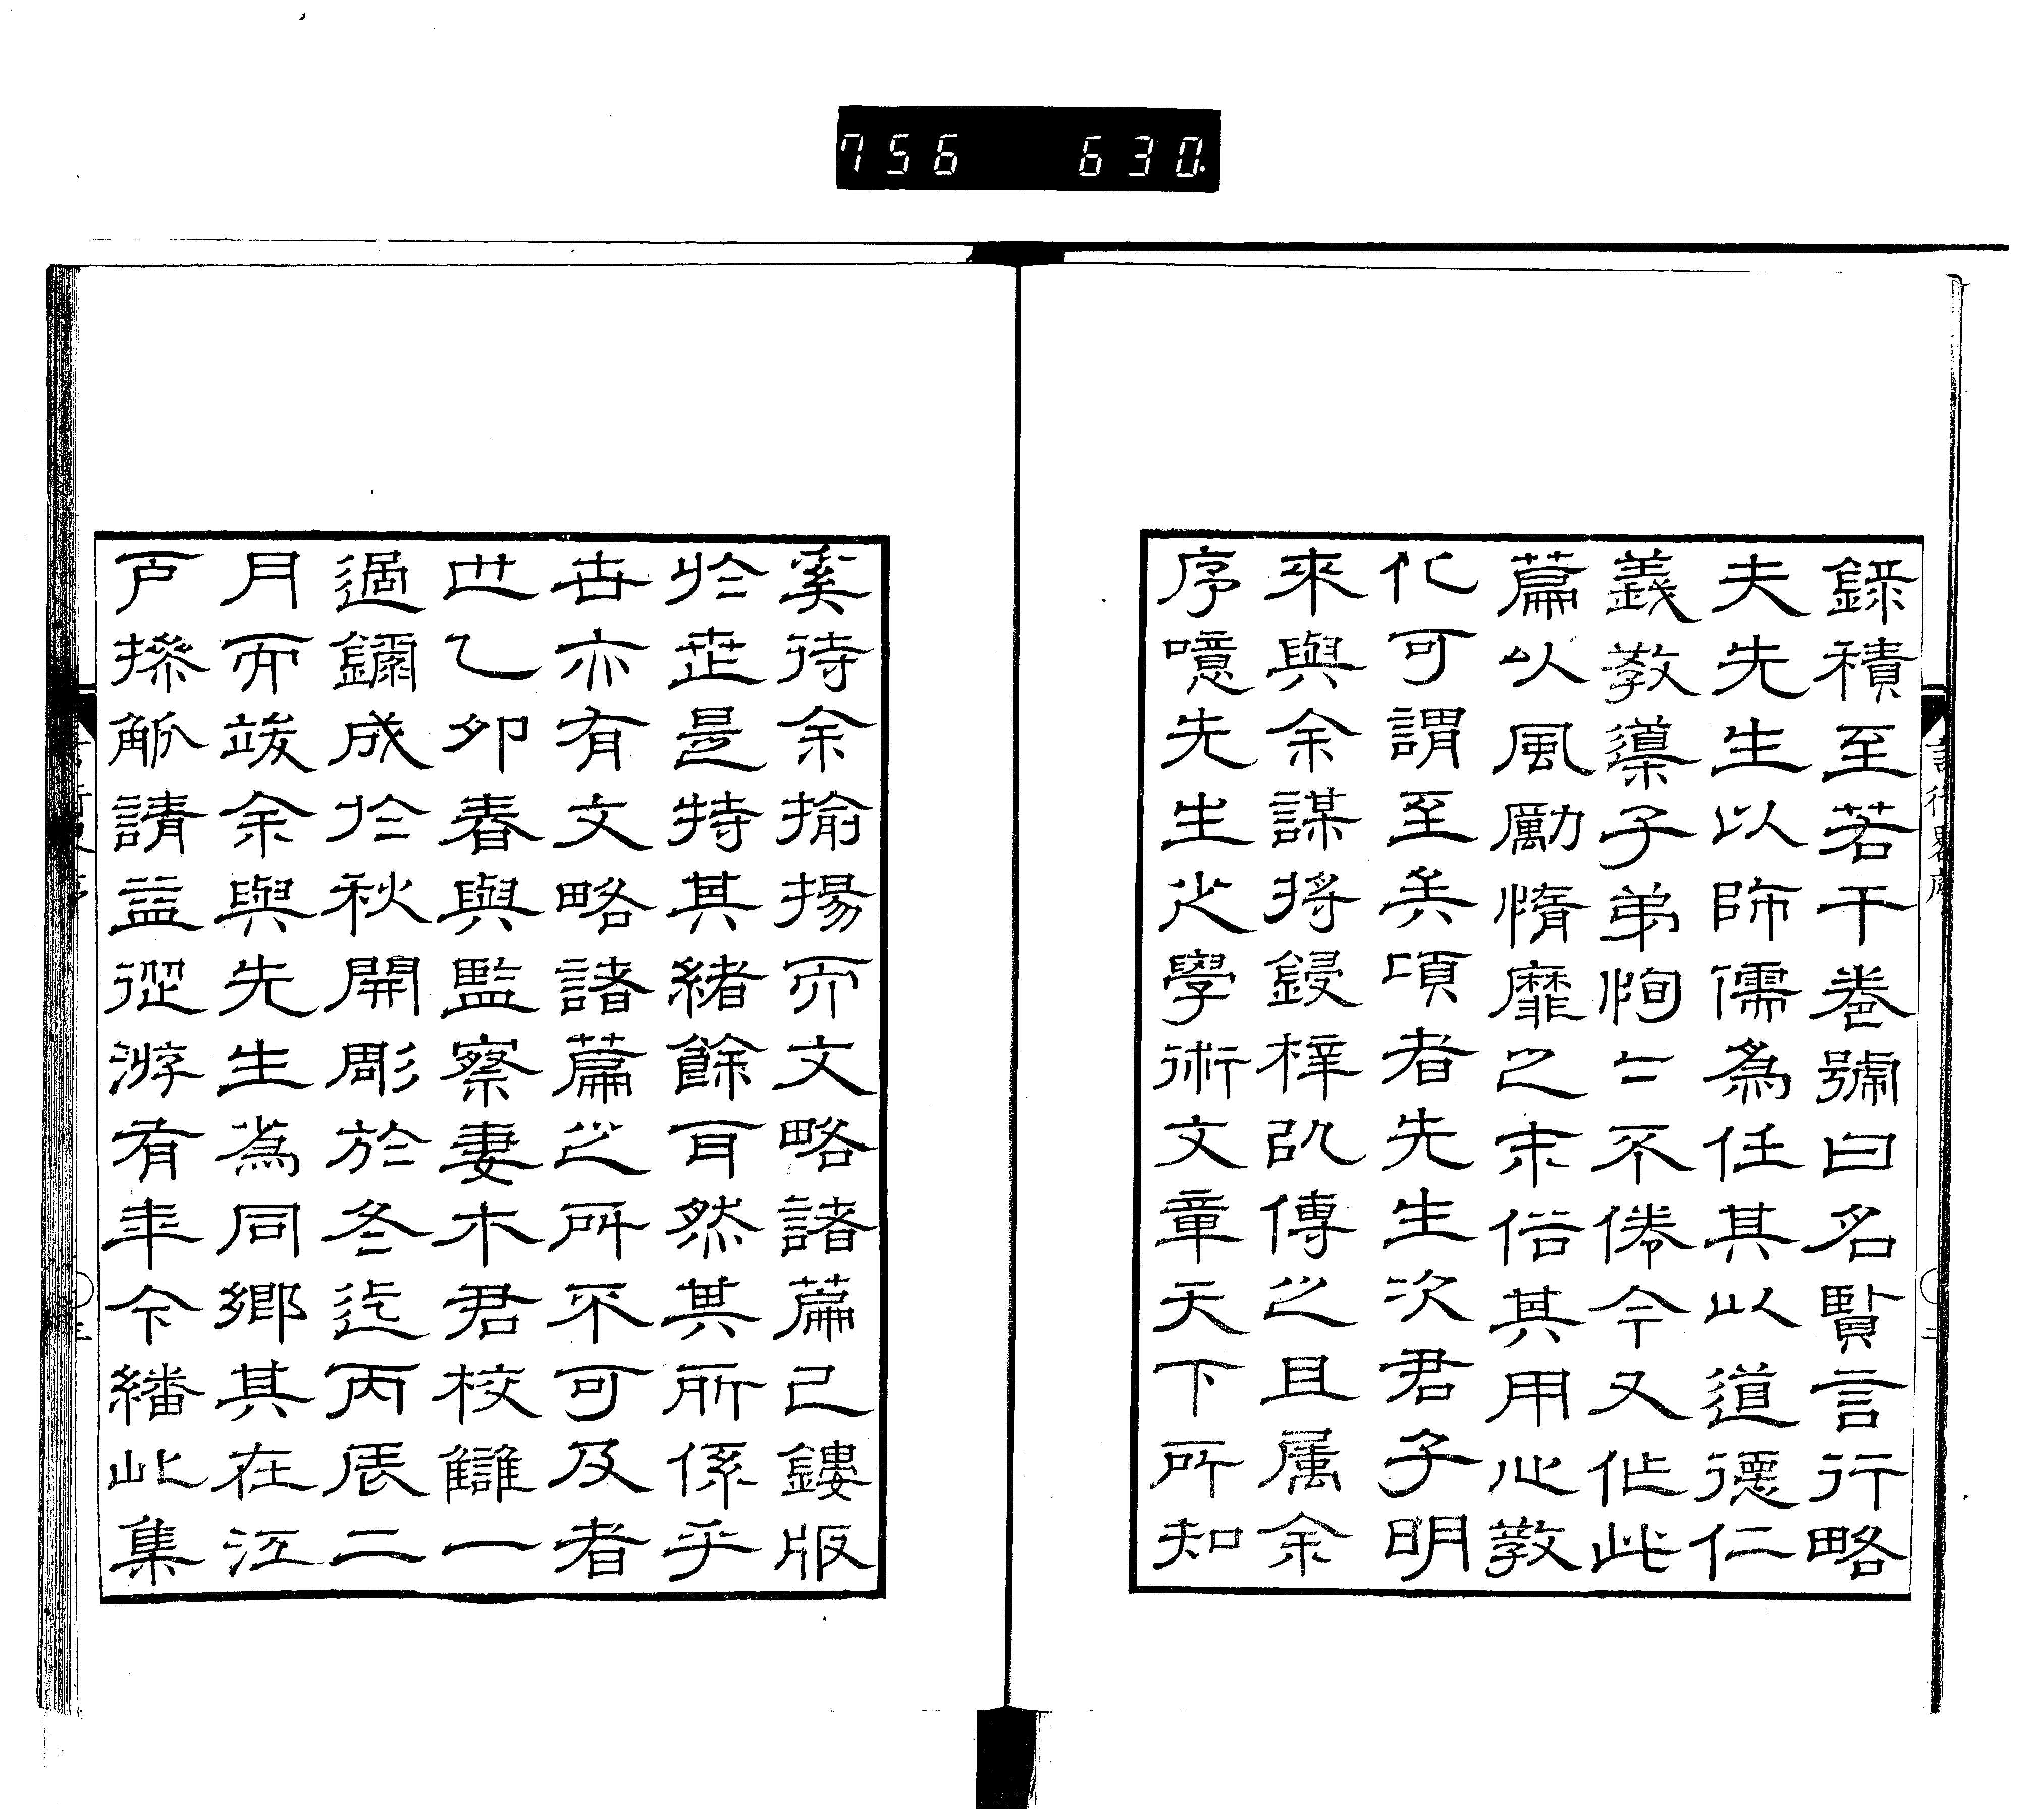 756 630
錄積至若干卷號曰名賢言行略
夫先生以師儒為任其以道德仁
義教導子弟恂〻不倦今又作此
篇以風勵惰靡之末俗其用心敎
化可謂至矣頃者先生次君子明
來與余謀將鋟梓以傳之且属余
序噫先生之學術文章天下所知
奚待余揄揚而文略諸篇已鏤版
於世是特其緒餘耳然其所係乎
世亦有文略諸篇之所不可及者
也乙卯春與監察妻木君校讎一
過鏽成於秋開彫於冬迄丙辰二
月而竣余與先生為同鄉其在江
戶操觚請益從游有年今繙此集